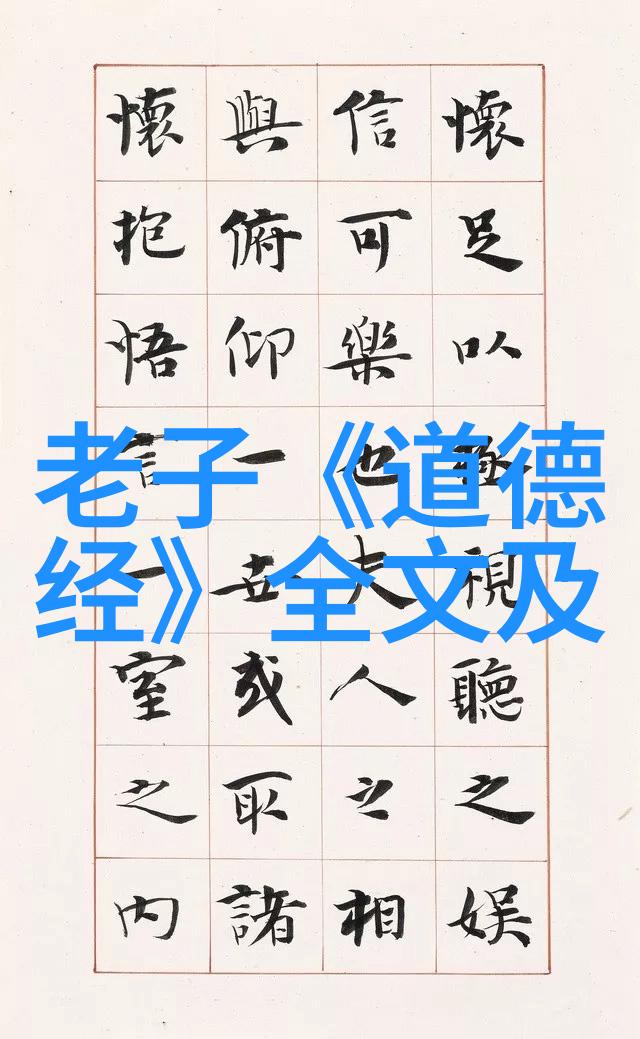 懷足以極視聽之娛
信可樂也夫人之相
與俯仰一世或取諸
懷抱悟言一室之內
老子《道德
经》全文及